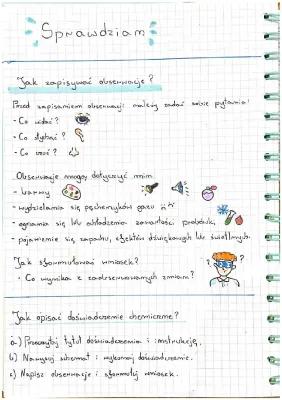 Sprawdziam
Jak zapisywać obserwacje?
Przed zapisaniem obserwacji należy zadać sobie pytania:
- Co widać?
- Co słychać?
- Co czuć?
Obserwacje mogą dotyczyć m.in.
- barwy
- wydzielania się pęcherzyków gazu
- ogrzania się lub ochłodzenia zawartości probówki,
- pojawienie się zapachu, efektów dźwiękowych lub świetlnych.
Jak sformułować wniosek?
- Co wynika z zaobserwowanych zmian?
Jak opisać doświadczenie chemiczne?
a) Przeczytaj tytuł doświadczenia i instrukcję.
b) Narysuj schemat i wykonaj doświadczenie.
c) Napisz obserwacje i sformułuj wniosek.